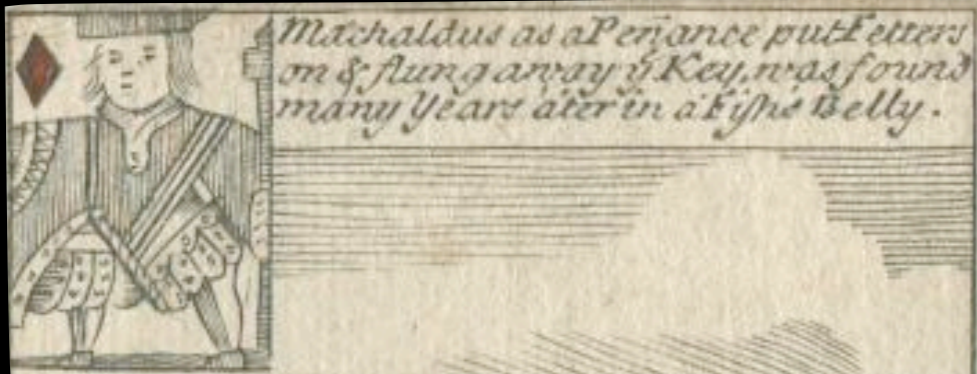 Machaldus as a Penance put Fetters
on & flung away yͤ Key, was found
many Years ater in a Fishe Belly.